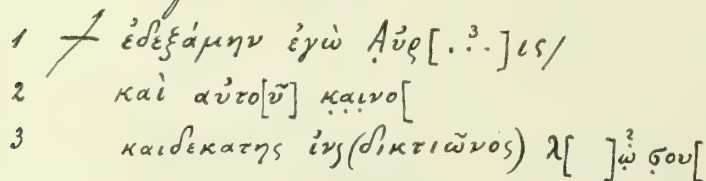 1 ἐδεξάμην ἐγὼ Α̣ὐρ[.3..]ις/
2 καὶ αὐτο[ῦ] κ̣α̣ι̣νο[
3 καιδεκατης ἰνς(δικτιῶνος) λ[ ]ω̣ σ̣ου[